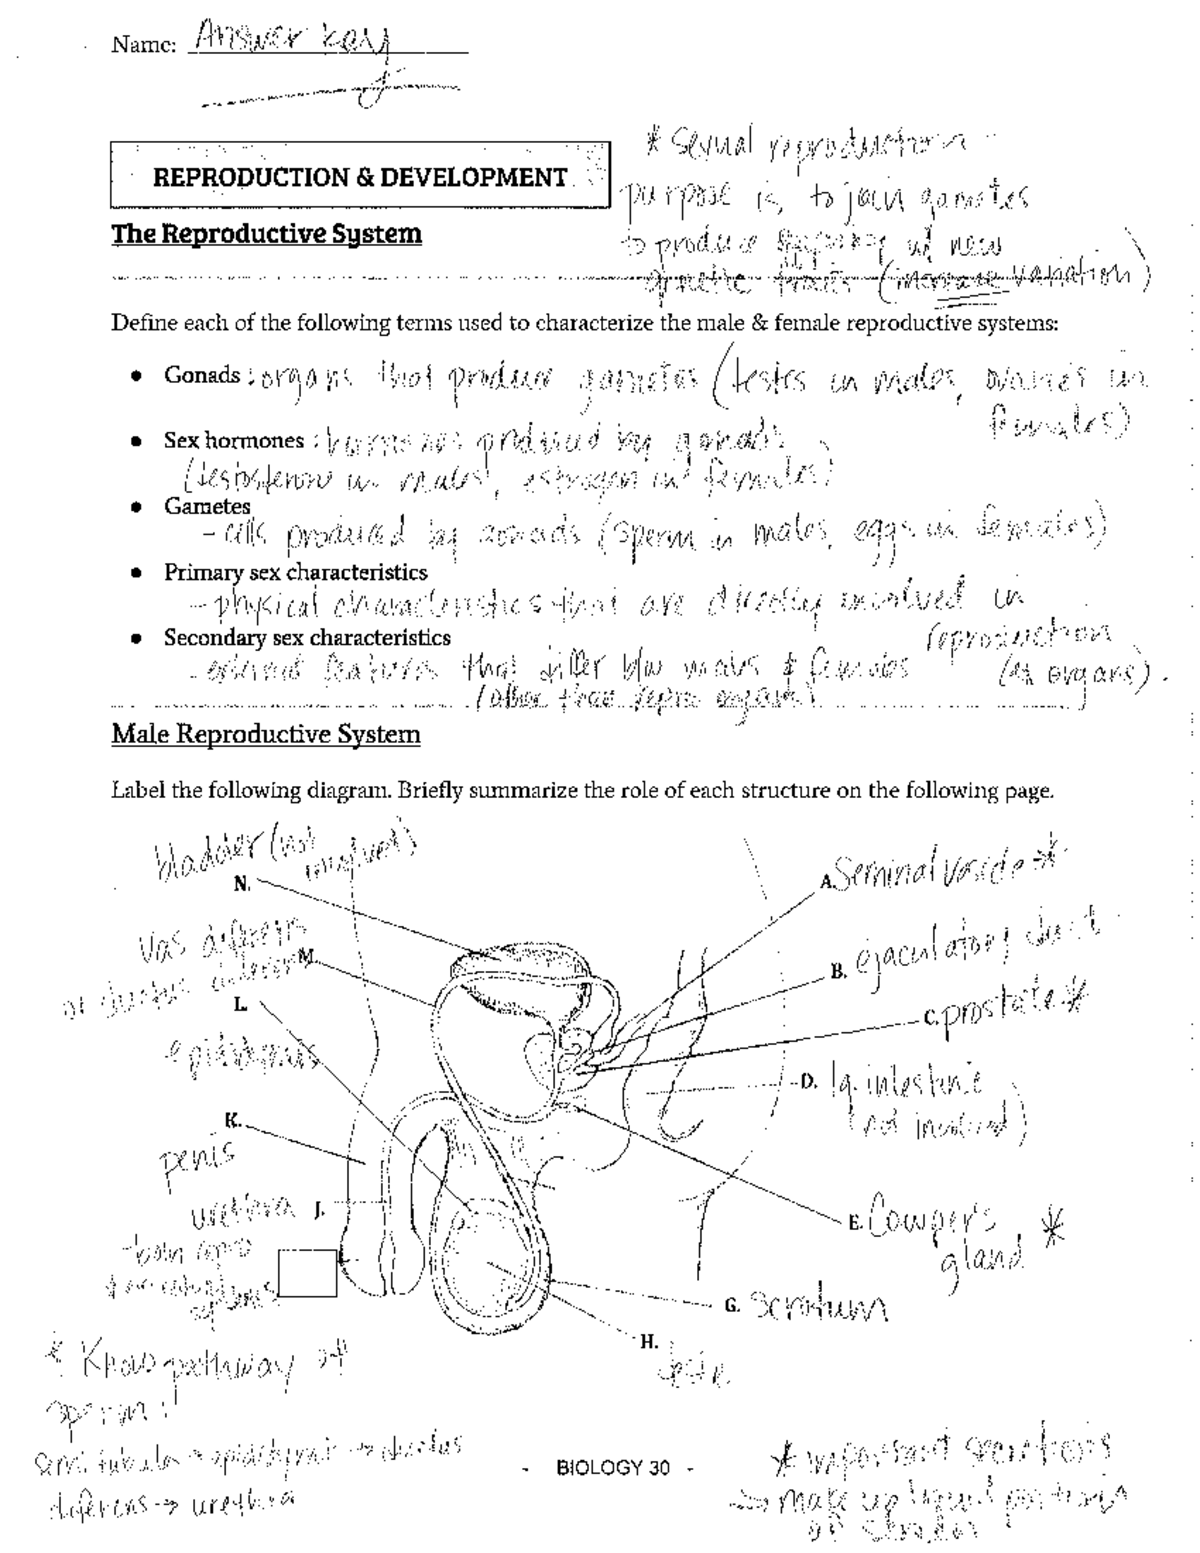 Name: Answer key
* Sexual reproduction -
purpose is to join gametes
to produce offspring w/ new
genetic traits (increase variation)
REPRODUCTION & DEVELOPMENT
The Reproductive System
Define each of the following terms used to characterize the male & female reproductive systems:
● Gonads : organs that produce gametes (testes in males, ovaries in
females)
● Sex hormones : hormones produced by gonads
(testosterone in males, estrogen in females)
● Gametes
- cells produced by gonads (sperm in males, eggs in females)
● Primary sex characteristics
- physical characteristics that are directly involved in
reproduction
● Secondary sex characteristics
(organs).
- external features that differ b/w males & females
(other than repro organs)
Male Reproductive System
Label the following diagram. Briefly summarize the role of each structure on the following page.
bladder (not
involved)
N.
A. Seminal vesicle *
vas deferens
M.
or ductus deferens
B. ejaculatory duct
L.
C. prostate *
epididymus
D. lg. intestine
(not involved)
K.
penis
urethra J.
E. Cowper's
gland *
- both repro
G. scrotum
H.
teste
* Know pathway of
sperm:
semi. tubules → epididymis → ductus
deferens → urethra
- BIOLOGY 30 -
* important secretions
→ make up liquid portion
of